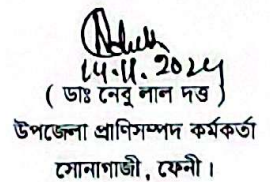 14.11.2024
( ডাঃ নেবু লাল দত্ত )
উপজেলা প্রাণিসম্পদ কর্মকর্তা
সোনাগাজী, ফেনী।